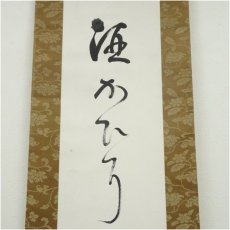 酒かひり